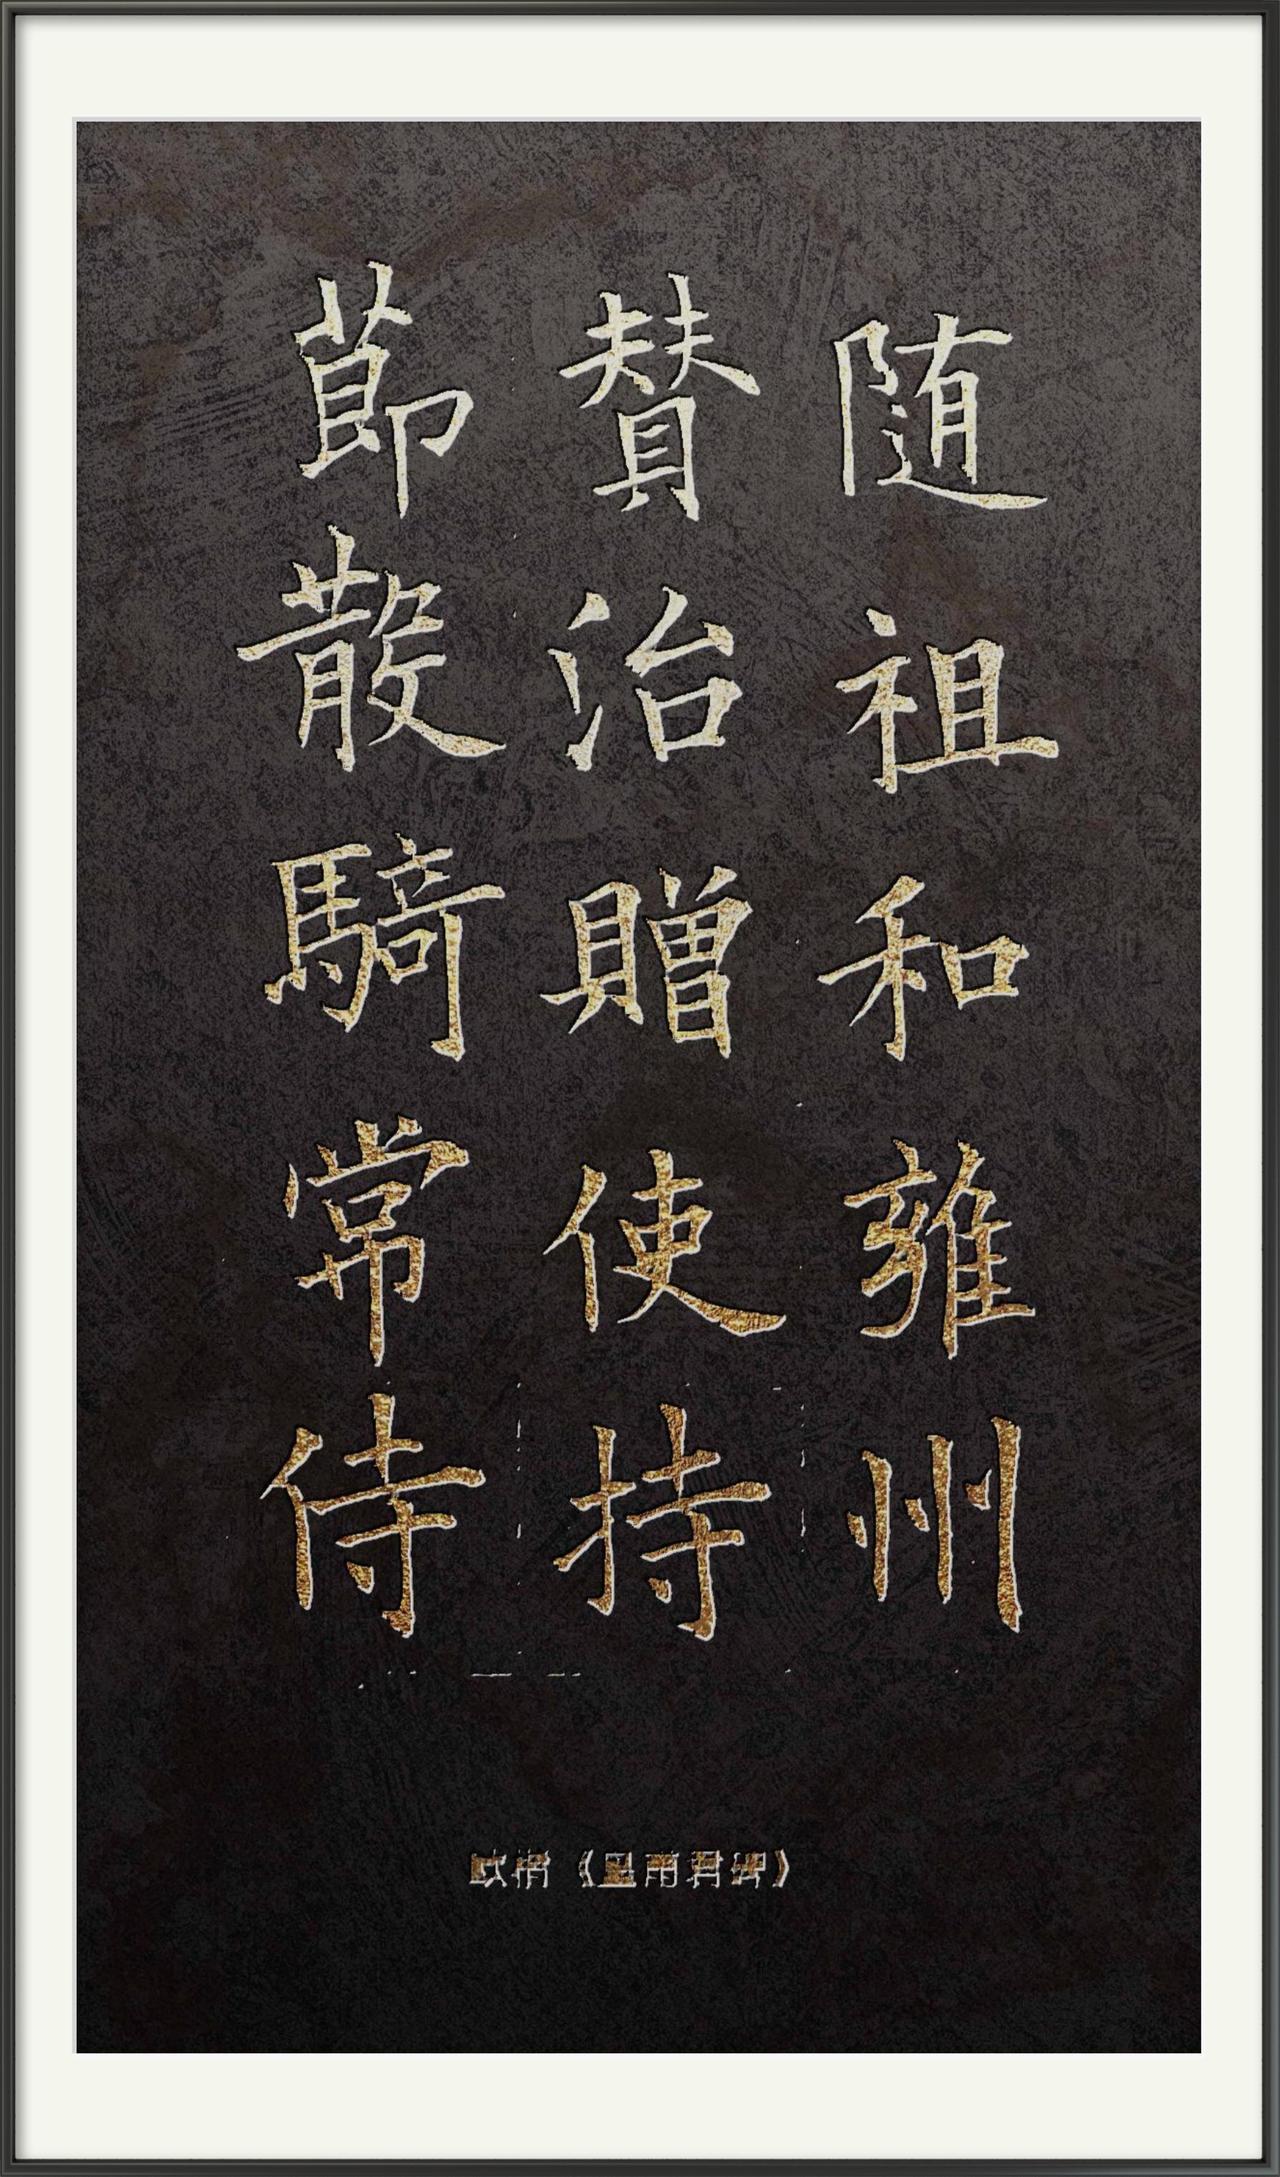 随祖和雍州
賛治贈使持
莭散騎常侍
欧楷《皇甫君碑》